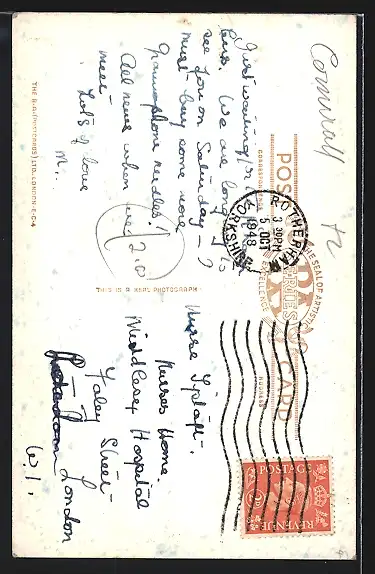 Cornwall
Just waiting for
bus. We are longing to
see you on Saturday - ?
must buy some more
Gramophone needles!
All news when we
meet
Lots of love
M.
POST CARD
CORRESPONDENCE
ADDRESS
THE SEAL OF ARTISTIC EXCELLENCE
SERIES
ROTHERHAM
3.30PM
5 OCT
1948
YORKSHIRE
THE R.A. (POSTCARDS) LTD. LONDON E.C.4
THIS IS A REAL PHOTOGRAPH
Nurse
Nurses Home.
Middlesex Hospital
Foley Street
London
W.1.
POSTAGE
REVENUE